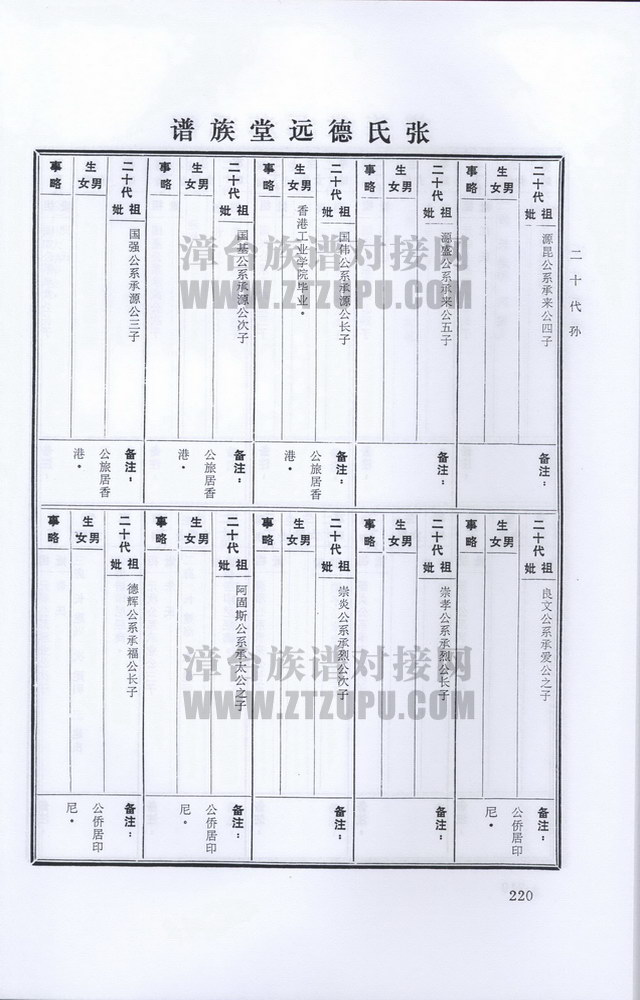 张氏德远堂族谱
二十代孙
二十代祖妣
源昆公系承来公四子
生男女
事略
备注：
二十代祖妣
源盛公系承来公五子
生男女
事略
备注：
二十代祖妣
国伟公系承源公长子
生男女
香港工业学院毕业。
事略
备注：
公旅居香
港。
二十代祖妣
国基公系承源公次子
生男女
事略
备注：
公旅居香
港。
二十代祖妣
国强公系承源公三子
生男女
事略
备注：
公旅居香
港。
二十代祖妣
良文公系承爱公之子
生男女
事略
备注：
公侨居印
尼。
二十代祖妣
崇孝公系承烈公长子
生男女
事略
备注：
二十代祖妣
崇炎公系承烈公次子
生男女
事略
备注：
二十代祖妣
阿固斯公系承太公之子
生男女
事略
备注：
公侨居印
尼。
二十代祖妣
德辉公系承福公长子
生男女
事略
备注：
公侨居印
尼。
220
漳台族谱对接网
WWW.ZTZUPU.COM
漳台族谱对接网
WWW.ZTZUPU.COM